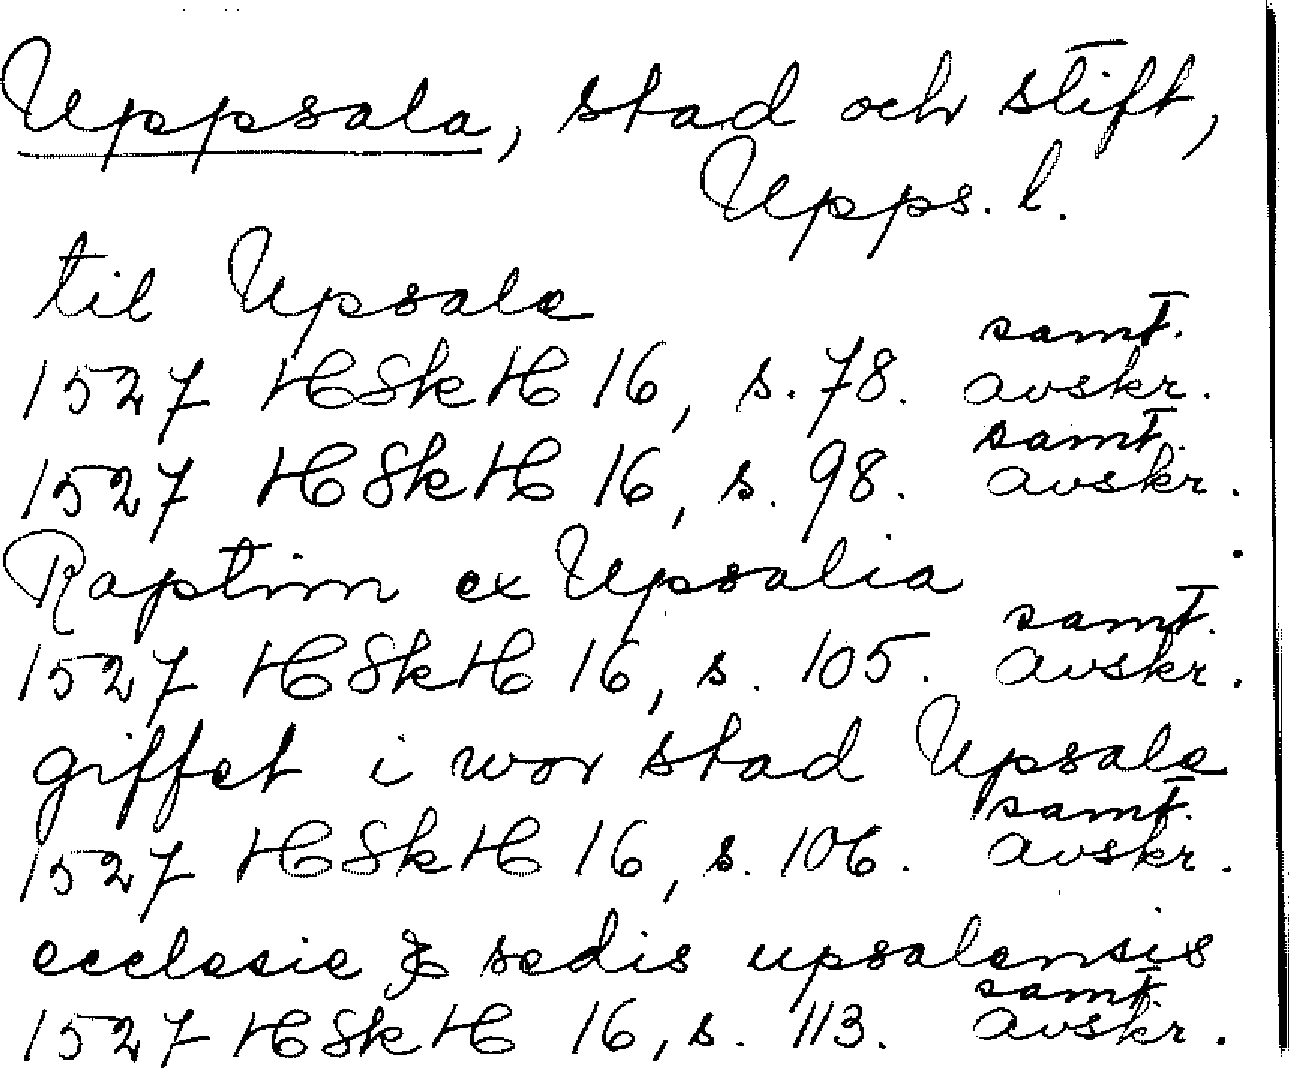 Uppsala, stad och stift,
Upps. l.
til Upsala
samt.
1527 HSkH 16, s. 78. avskr.
samt.
1527 HSkH 16, s. 98. avskr.
Raptim ex Upsalia
samt.
1527 HSkH 16, s. 105. avskr.
giffet i wor stad Upsala
samt.
1527 HSkH 16, s. 106. avskr.
ecclesie & sedis upsalensis
samt.
1527 HSkH 16, s. 113. avskr.